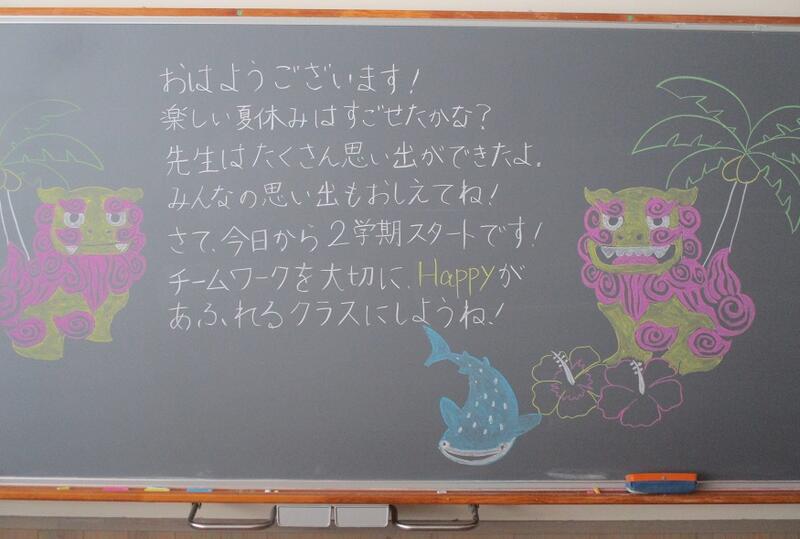 おはようございます!
楽しい夏休みはすごせたかな?
先生はたくさん思い出ができたよ。
みんなの思い出もおしえてね!
さて、今日から2学期スタートです!
チームワークを大切に、Happyが
あふれるクラスにしようね!